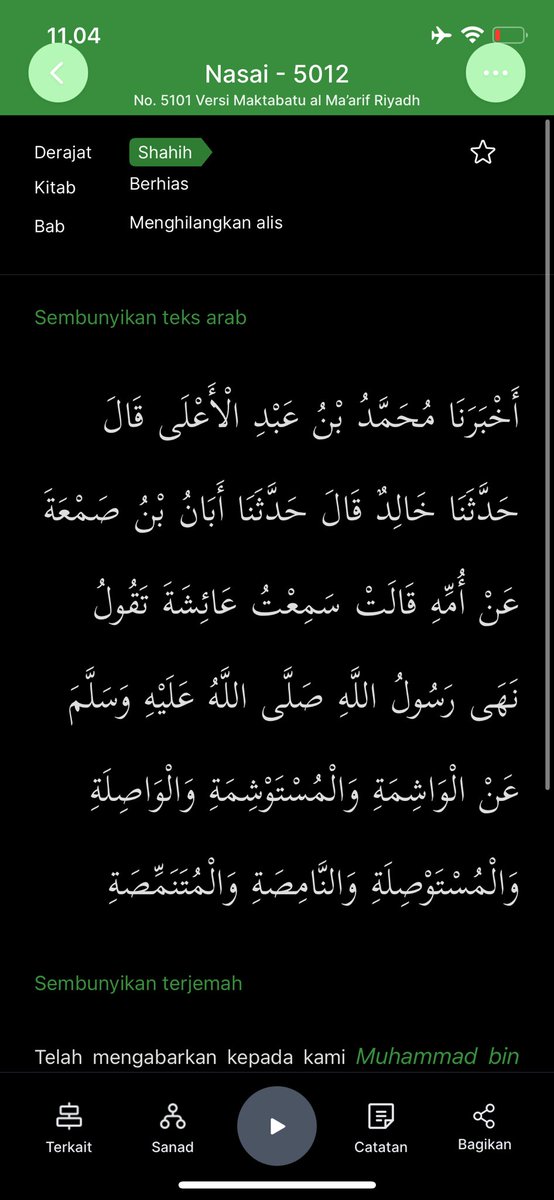 11.04
Nasai - 5012
No. 5101 Versi Maktabatu al Ma'arif Riyadh
Derajat Shahih
Kitab Berhias
Bab Menghilangkan alis
Sembunyikan teks arab
أَخْبَرَنَا مُحَمَّدُ بْنُ عَبْدِ الْأَعْلَى قَالَ
حَدَّثَنَا خَالِدٌ قَالَ حَدَّثَنَا أَبَانُ بْنُ صَمْعَةَ
عَنْ أُمِّهِ قَالَتْ سَمِعْتُ عَائِشَةَ تَقُولُ
نَهَى رَسُولُ اللَّهِ صَلَّى اللَّهُ عَلَيْهِ وَسَلَّمَ
عَنْ الْوَاشِمَةِ وَالْمُسْتَوْشِمَةِ وَالْوَاصِلَةِ
وَالْمُسْتَوْصِلَةِ وَالنَّامِصَةِ وَالْمُتَنَمِّصَةِ
Sembunyikan terjemah
Telah mengabarkan kepada kami Muhammad bin
Terkait Sanad Catatan Bagikan